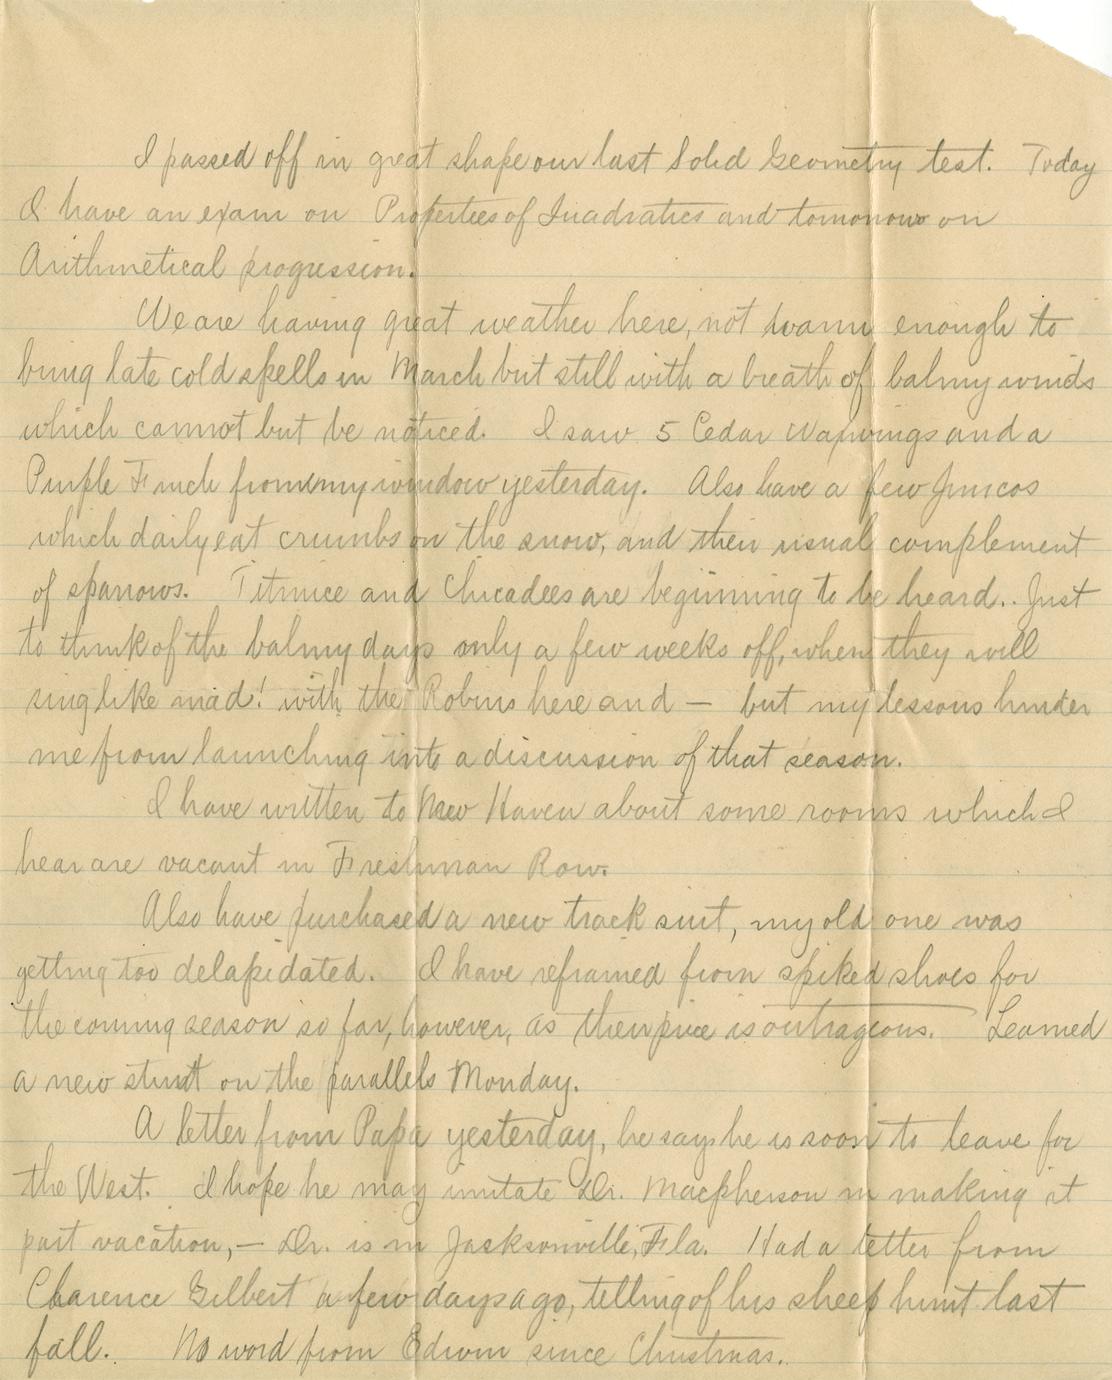 I passed off in great shape our last Solid Geometry test. Today
I have an exam on Properties of Quadratics and tomorrow on
Arithmetical progression.
We are having great weather here, not warm enough to
bring late cold spells in March but still with a breath of balmy winds
which cannot but be noticed. I saw 5 Cedar Waxwings and a
Purple Finch from my window yesterday. Also have a few Juncos
which daily eat crumbs on the snow, and their usual complement
of sparrows. Titmice and Chicadees are beginning to be heard. Just
to think of the balmy days only a few weeks off, when they will
sing like mad! with the Robins here and — but my lessons hinder
me from launching into a discussion of that season.
I have written to New Haven about some rooms which I
hear are vacant in Freshman Row.
Also have purchased a new track suit, my old one was
getting too delapidated. I have refrained from spiked shoes for
the coming season so far, however, as their price is outrageous. Learned
a new stunt on the parallels Monday.
A letter from Papa yesterday, he says he is soon to leave for
the West. I hope he may imitate Dr. Macpherson in making it
part vacation, — Dr. is in Jacksonville, Fla. Had a letter from
Clarence Gilbert a few days ago, telling of his sheep hunt last
fall. No word from Edwin since Christmas.